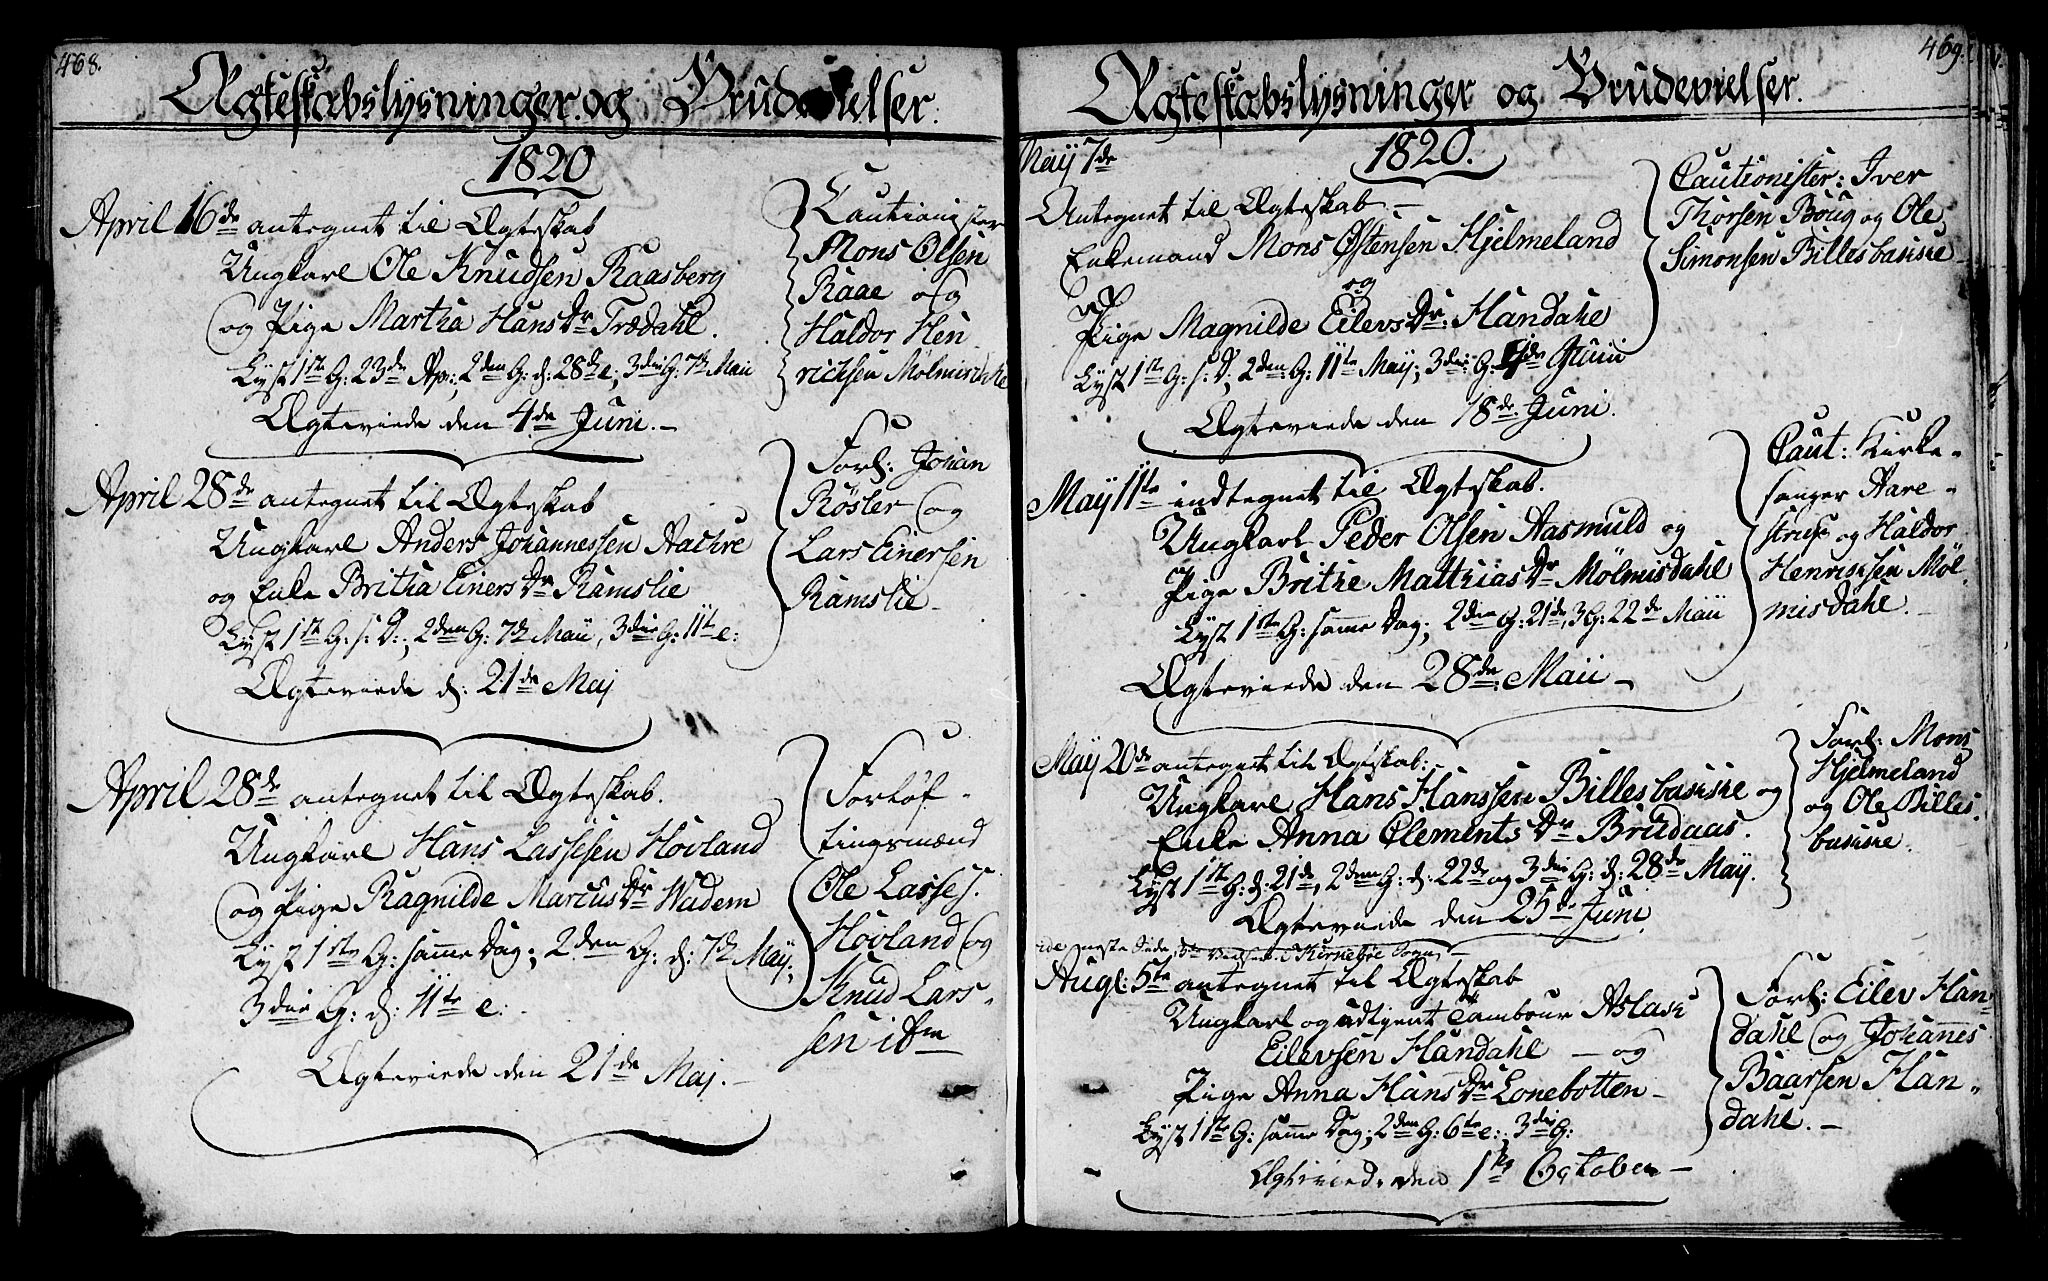 468.
Ægteskabslysninger og Brudevielser.
1820
April 16de antegnet til Ægteskab
Ungkarl Ole Knudsen Raasberg
og Pige Martha HansDr Trædahl.
Lyst 1ste G: 23de Ap:; 2den G: d: 28de e; 3die G: 7de Maii
Ægteviede den 4de Juni.-
Cautionister
Mons Olsen
Raae og
Haldor Hen-
richsen Mølmisdahl
April 28de antegnet til Ægteskab
Ungkarl Anders Johannessen Aachre
og Enke Britha EinersDr Ramslie
Lyst 1ste G: s: D:; 2den G: 7de Maii, 3die G: 11te e:
Ægteviede d: 21de Maj
Forl: Johan
Røsler og
Lars Einersen
Ramslie-
April 28de antegnet til Ægteskab.
Ungkarl Hans Lassesen Hovland
og Pige Ragnilde MarcusDr Wadem
Lyst 1ste G: samme Dag; 2den G: d: 7de Maÿ;
3die G: d: 11te e.
Ægteviede den 21de Maj.-
Forløf-
tingsmænd
Ole Lasses:
Hovland og
Knud Lars-
sen ibm
469.
Ægteskabslysninger og Brudevielser.
1820.
Maÿ 7de
Antegnet til Ægteskab.-
Enkemand Mons Østensen Hjelmeland
og
Pige Magnilde EilevsDr: Handahl
Lyst 1ste G: s: D; 2den: G: 11te Maÿ; 3die: G: 4de Juni
Ægteviede den 18de Juni.
Cautionister: Iver
Thorsen Boug og Ole
Simonsen Billesbakke-
Maÿ 11te indtegnet til Ægteskab.
Ungkarl Peder Olsen Aasmuld og
Pige Brithe MatthiasDr Mølmisdahl
Lyst 1ste G: samme Dag; 2den G: 21de, 3 G: 22de Maii
Ægteviede den 28de Maii-
Caut: Kirke-
sanger Aare-
strup og Haldor
Henrichsen Møl-
misdahl.-
Maÿ 20de antegnet til Ægteskab:-
Ungkarl Hans Hanssen Billesbakke og
Enke Anna ClementsDr Brudaas.
Lyst 1ste G: d: 21de, 2den G: d: 22de og 3die G: d: 28de Maÿ.
Ægteviede den 25de Juni
Forl: Mons
Hjelmeland
og Ole Billes-
bakke.
næste Side Sogn
Aug: 5te antegnet til Ægteskab
Ungkarl og udtjent Tambour Aslak
Eilevsen Handahl - og
Pige Anna HansDr Lonebotten-
Lyst 1ste G: samme Dag; 2den G: 6te e:; 3die G:
Ægteviede den 1te October-
Forl: Eilev Han-
dahl og Johannes
Baarsen Han-
dahl.-